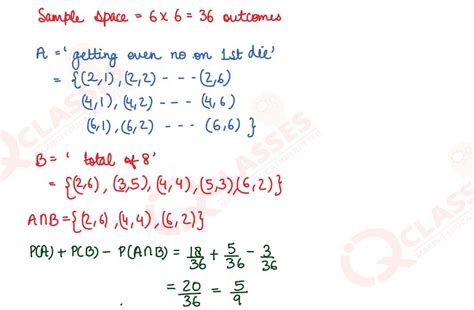 Sample space = 6 × 6 = 36 outcomes
A = 'getting even no on 1st die'
= {(2,1), (2,2) --- (2,6)
(4,1), (4,2) --- (4,6)
(6,1), (6,2) --- (6,6)}
B = ' total of 8'
= {(2,6), (3,5), (4,4), (5,3)(6,2)}
A∩B = {(2,6), (4,4), (6,2)}
P(A) + P(B) - P(A∩B) = 18/36 + 5/36 - 3/36
= 20/36 = 5/9
CLASSES
CLASSES
CLASSES